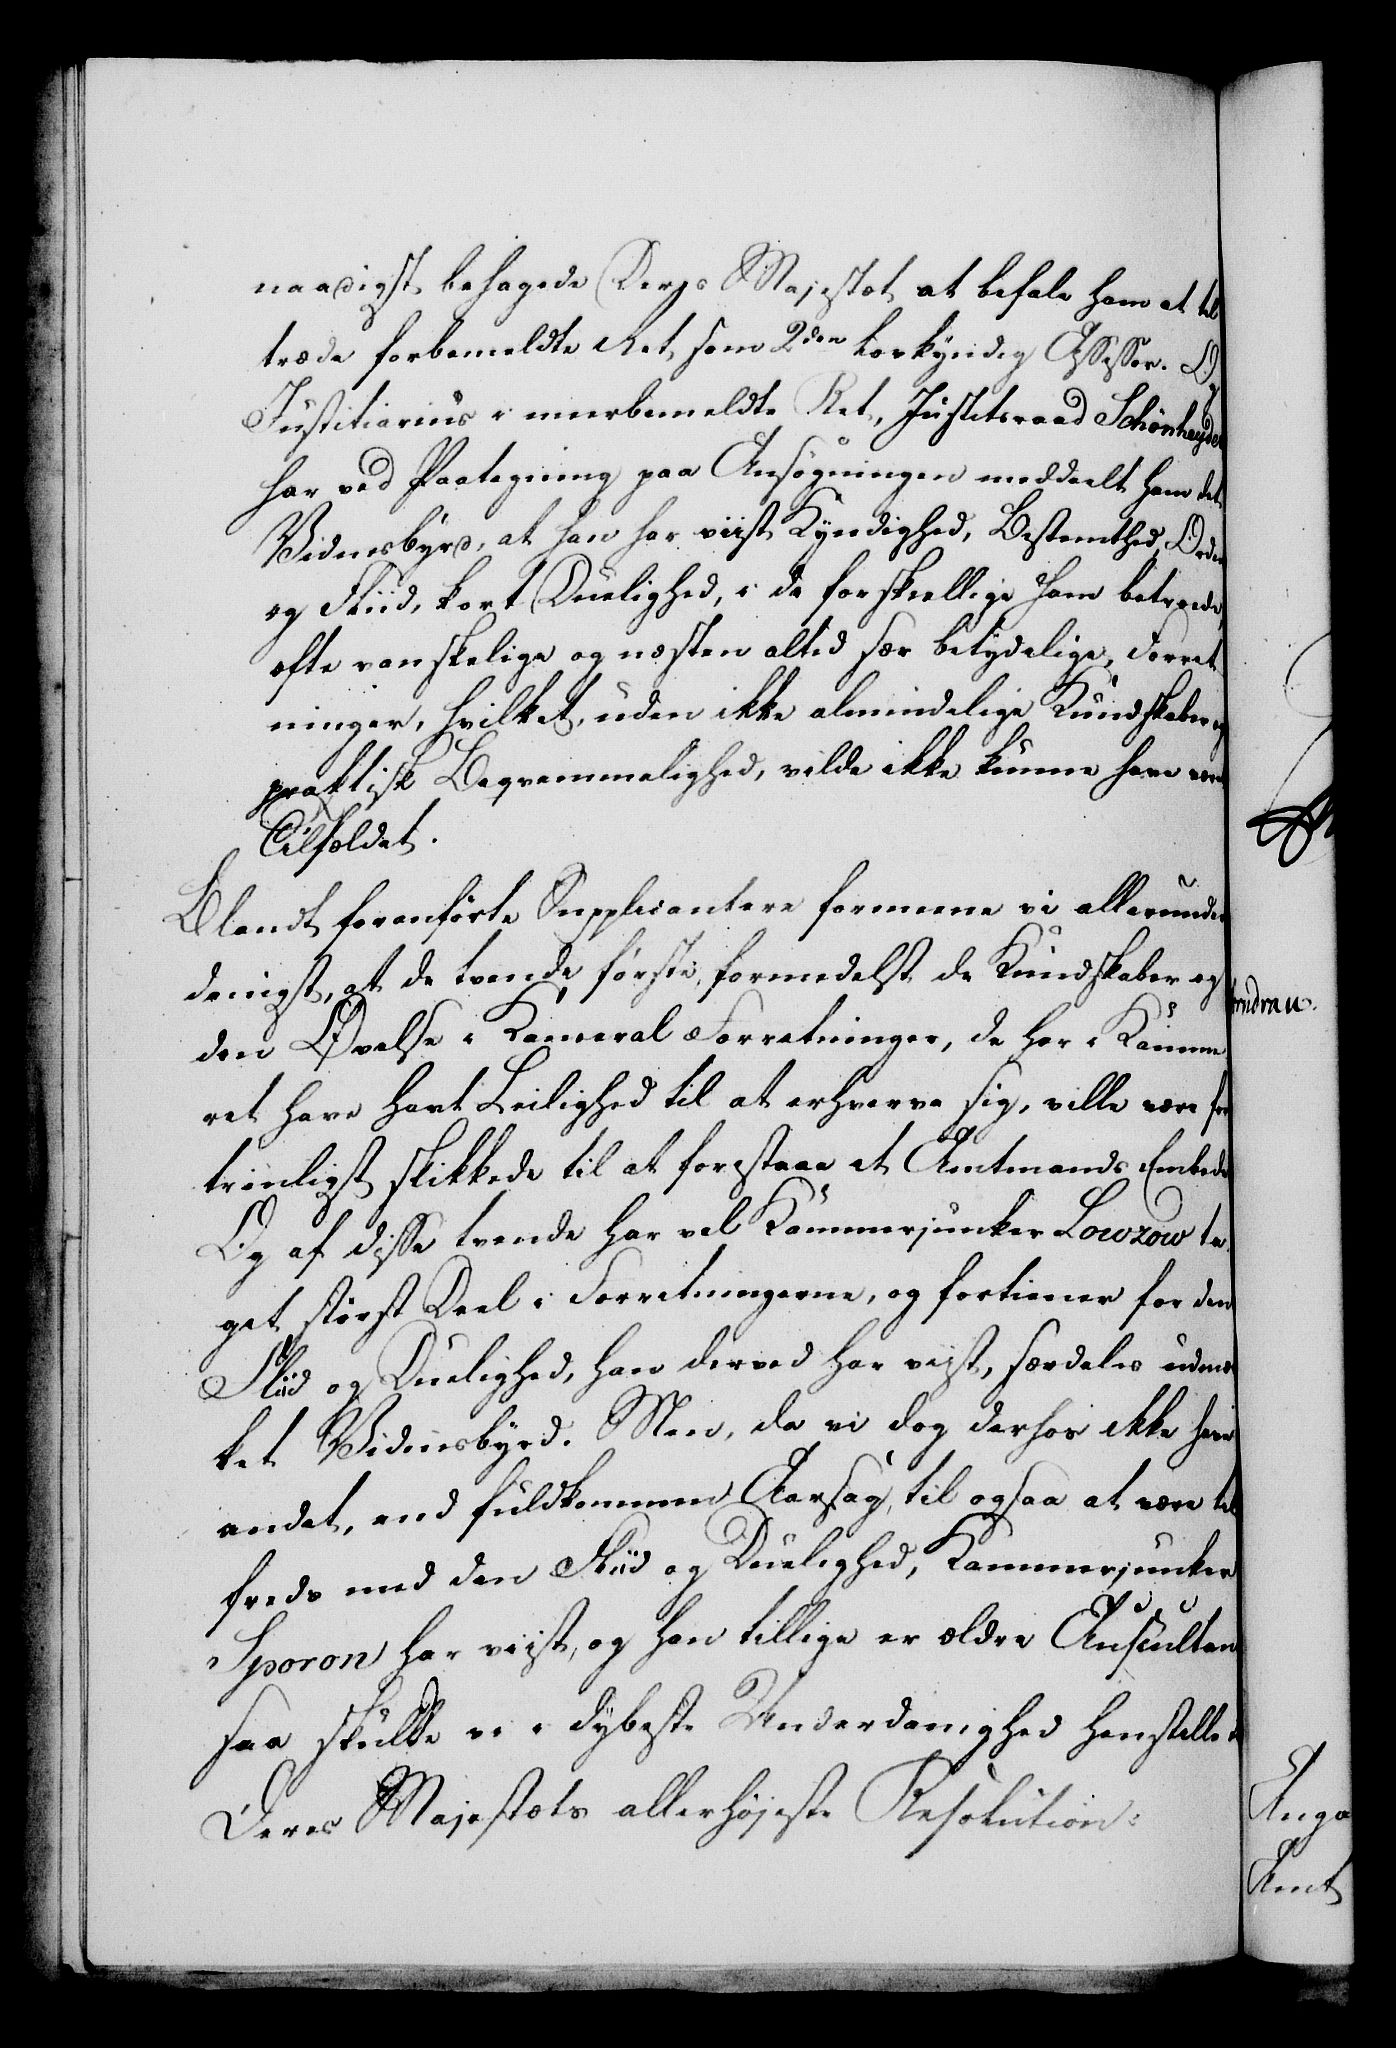 naadigst behagede Deres Majestæt at befale ham at til
træde forbemeldte Ret som 2den Lovkyndig Assessor. Og
Justitiarius i meerbemeldte Ret, Justitsraad Schønheyder
har ved Paategning paa Ansøgningen meddeelt ham det
Vidnesbyrd, at han har viist Kyndighed, Bestemthed, Orden
og Fliid, kort Duelighed, i de forskiellige ham betroede,
ofte vanskelige og næsten altid sær betydelige, Forret
ninger, hvilket, uden ikke almindelige Kundskaber og
praktisk Beqvemmelighed, vilde ikke kunne have være
Tilfældet.
Blandt foranførte Supplicantere formeene vi allerunder
danigst, at de tvende første, formedelst de Kundskaber og
den Øvelse i Kameral Forretninger, de her i Kamme
ret have havt Leilighed til at erhverve sig, ville være for
trinligst skikkede til at forestaae et Amtmands Embede
Og af disse tvende har vel Kammerjunker Lowzow ta
get størst Deel i Forretningerne, og fortiener for den
Fliid og Duelighed, han derved har viist, særdeles udmær
ket Vidnesbyrd. Men, da vi dog derhos ikke have
andet, end fuldkommen Aarsag, til ogsaa at være til
freds med den Fliid og Duelighed, Kammerjunker
Sporon har viist, og han tillige er ældre Auscultant
saa skulle vi i dybeste Underdanighed henstille til
Deres Majestæts allerhøjeste Resolution:
Anga
Amt